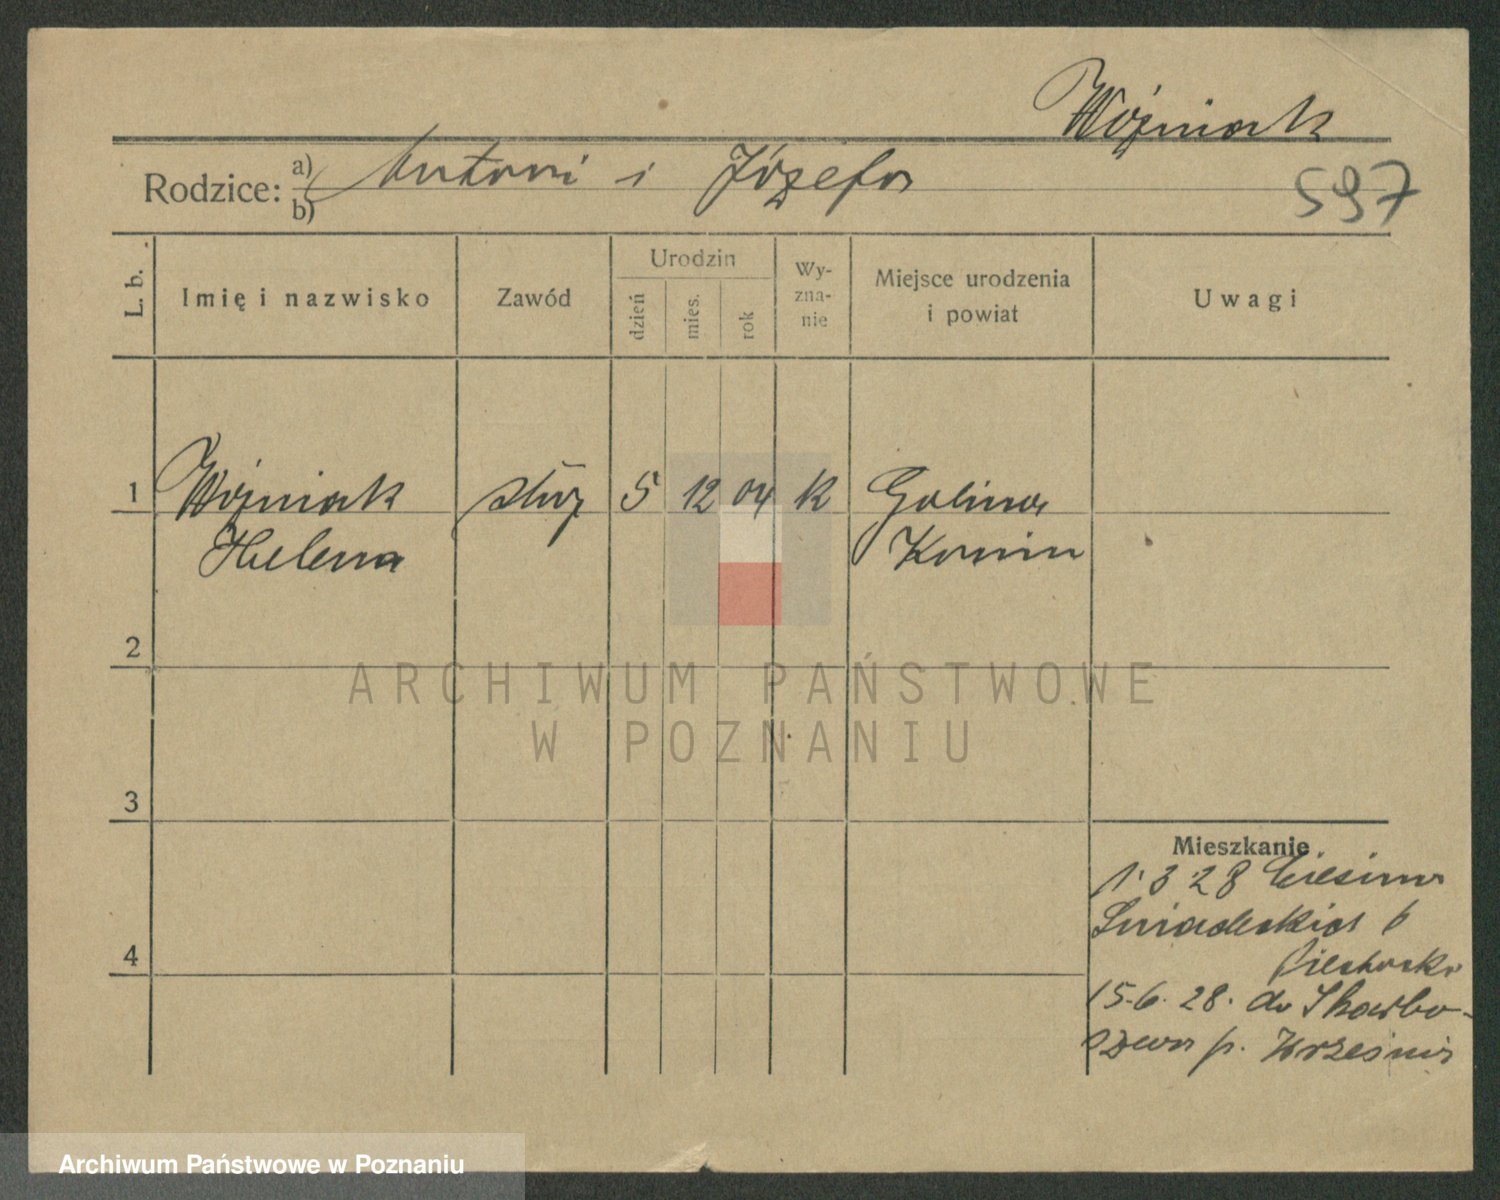 Woźniak
Rodzice: a) b) Antoni i Józefa
597
L. b.
Imię i nazwisko
Zawód
Urodzin
dzień
mies.
rok
Wy-
zna-
nie
Miejsce urodzenia
i powiat
Uwagi
1 Woźniak służ 5 12 04 K Golina
Helena Konin
2
3
4
Mieszkanie
1.3.28
Śniadeckich 6
15.6.28. do Skarbo-
szewa p. Września
ARCHIWUM PAŃSTWOWE
W POZNANIU
Archiwum Państwowe w Poznaniu